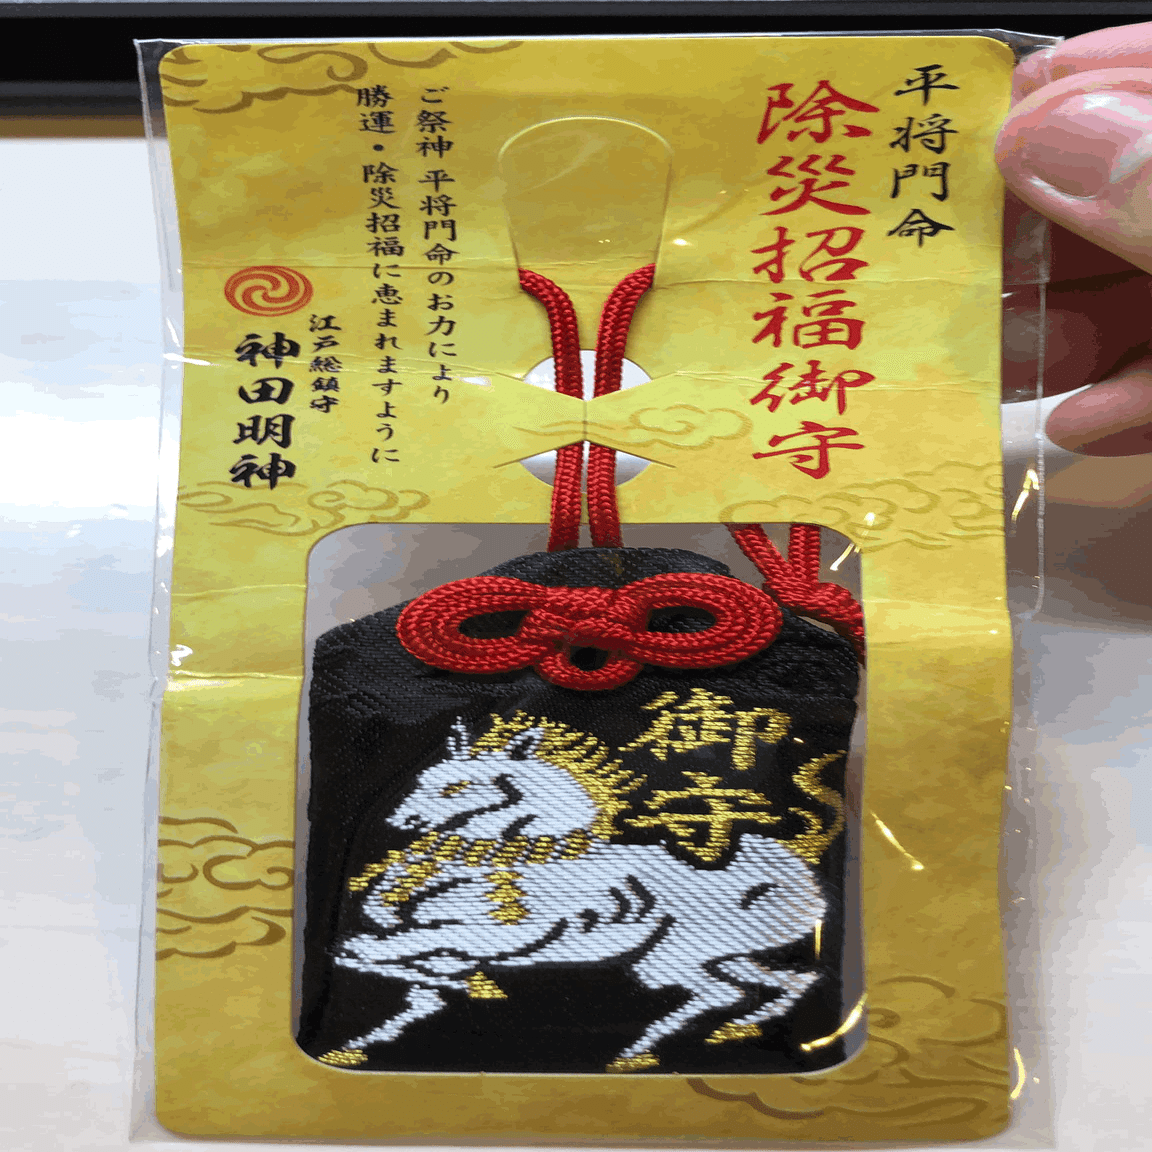 平将門命
除災招福御守
ご祭神 平将門命のお力により
勝運・除災招福に恵まれますように
江戸総鎮守
神田明神
御守